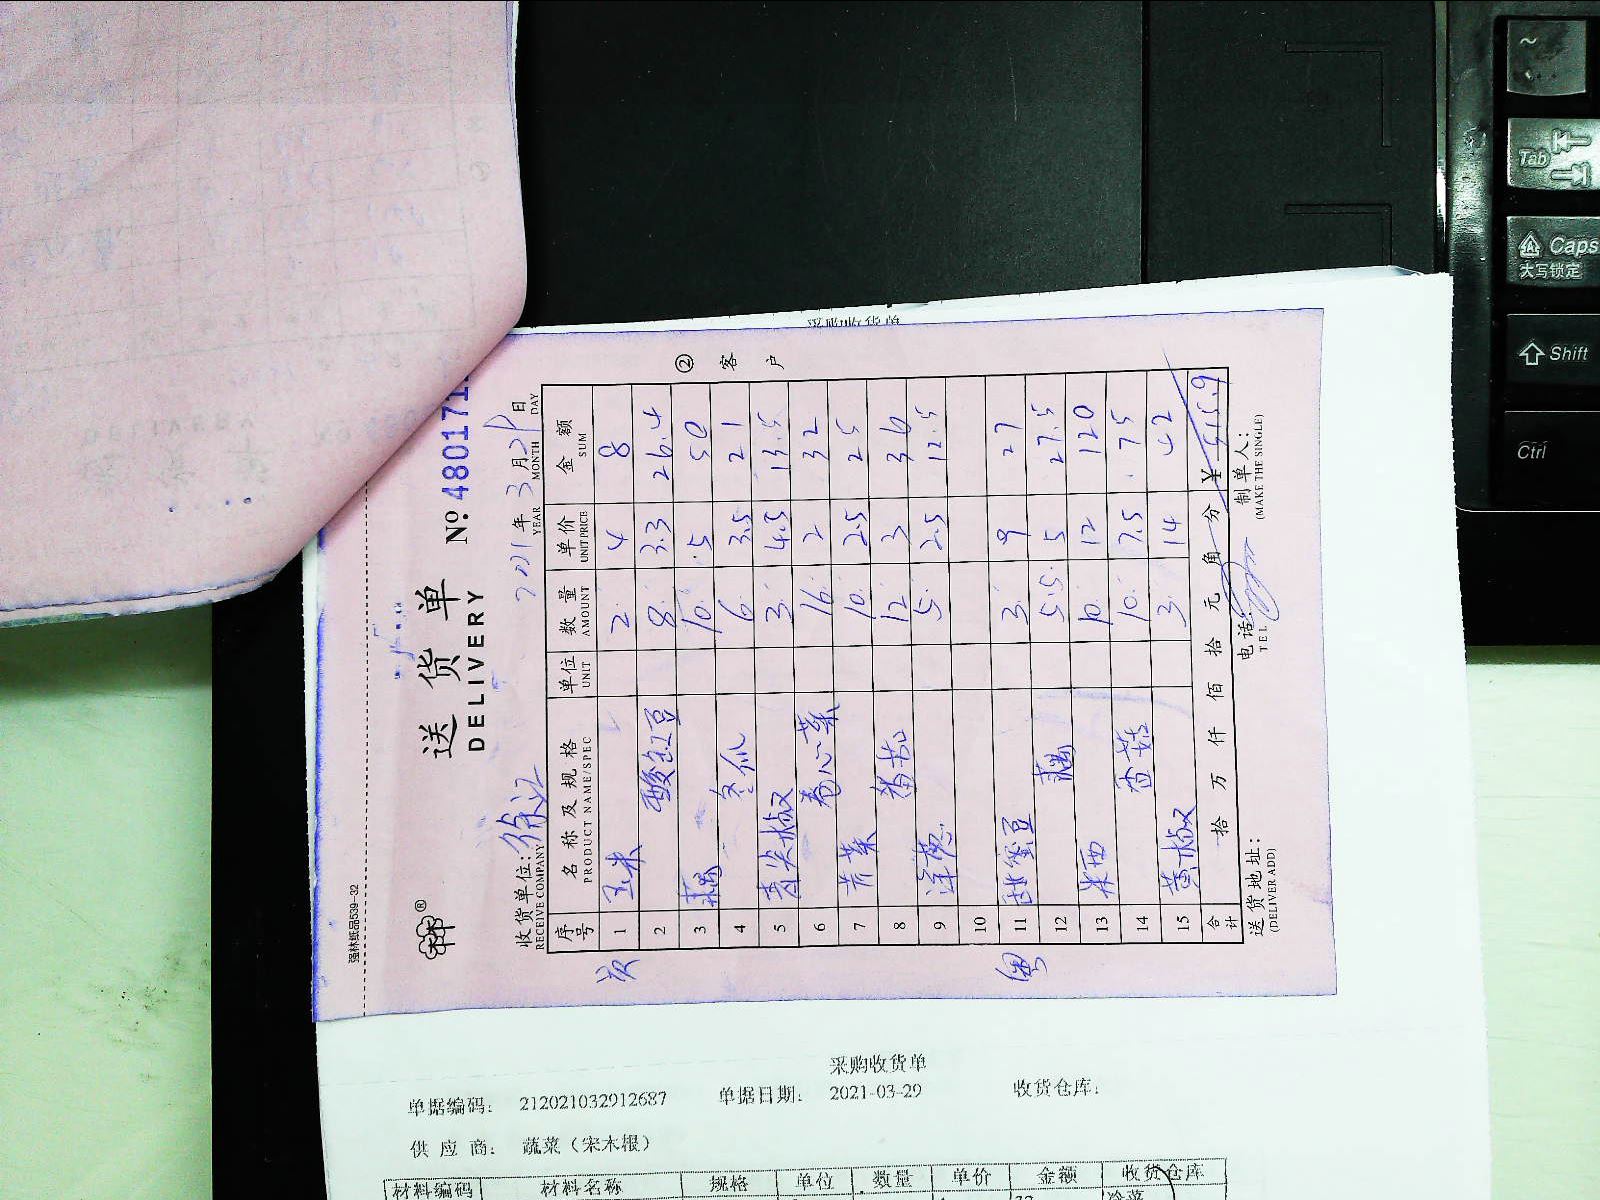 强林纸品539-32
送货单
DELIVERY
№ 480171
收货单位: 徐汇 2021年 3月29日
RECEIVE COMPANY YEAR MONTH DAY
② 客户
序号 名称及规格 单位 数量 单价 金额
PRODUCT NAME/SPEC UNIT AMOUNT UNIT PRICE SUM
1 玉米 2 4 8
2 酸豇豆 8 3.3 26.4
3 藕 10 5 50
4 冬瓜 6 3.5 21
5 青尖椒 3 4.5 13.5
6 卷心菜 16 2 32
7 芹菜 10 2.5 25
8 番茄 12 3 36
9 洋葱 5 2.5 12.5
10
11 甜蜜豆 3 9 27
12 藕 5.5 5 27.5
13 米西 10 12 120
14 香菇 10 7.5 75
15 黄椒 3 14 42
合计 拾 万 仟 佰 拾 元 角 分 ¥ 515.9
送货地址: 电话: 制单人:
(DELIVER.ADD) TEL (MAKE THE SINGLE)
采购收货单
采购收货单
单据编码: 212021032912687 单据日期: 2021-03-29 收货仓库:
供应商: 蔬菜(宋木根)
材料编码 材料名称 规格 单位 数量 单价 金额 收货仓库
冷菜
~
Tab
Caps
大写锁定
Shift
Ctrl